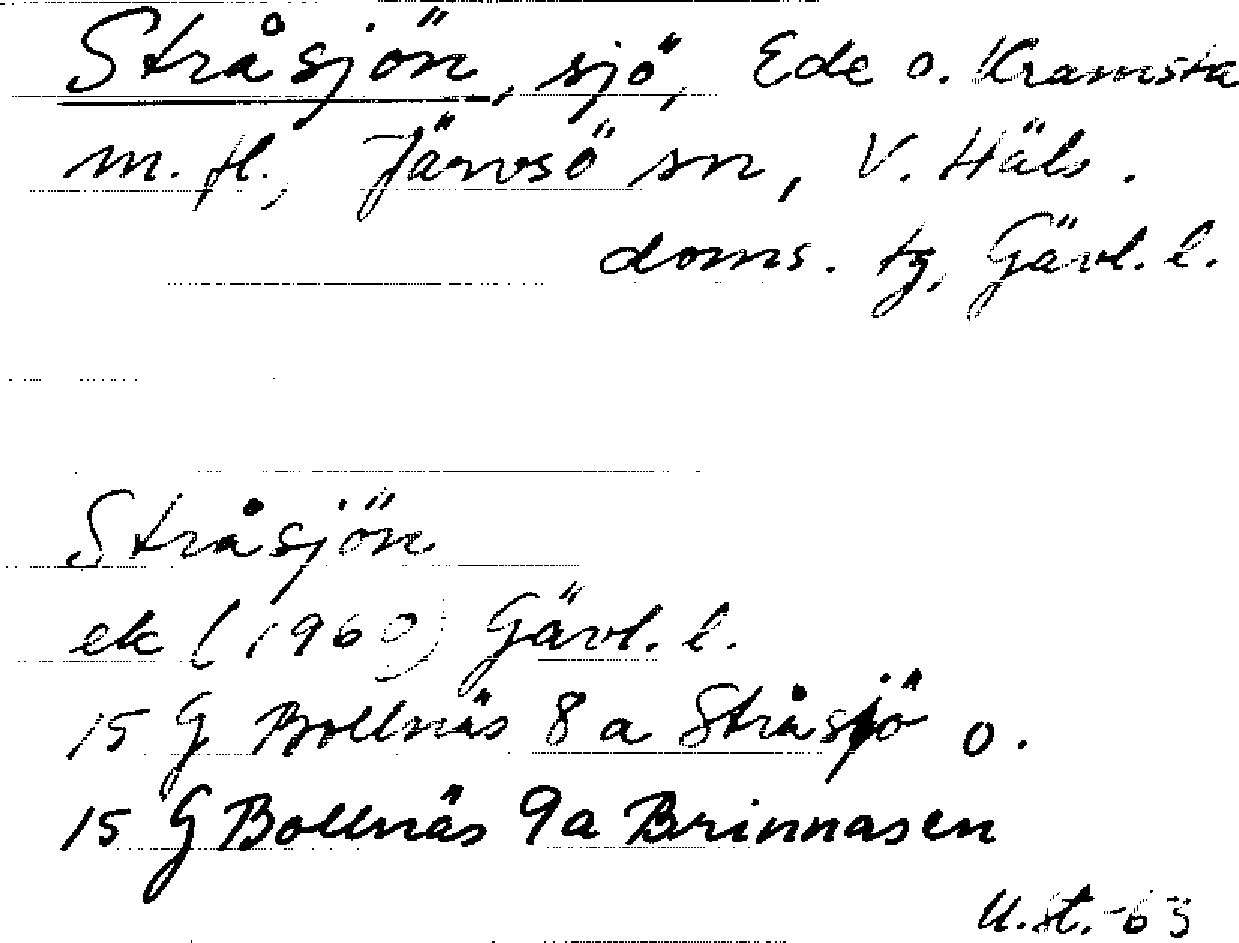 Stråsjön, sjö, Ede o. Kramsta
m. fl., Järvsö sn, V. Häls.
doms. tg, Gävl. l.
Stråsjön
ek (1960) Gävl. l.
15 G Bollnäs 8 a Stråsjö o.
15 G Bollnäs 9a Brinnasen
U.St.-63